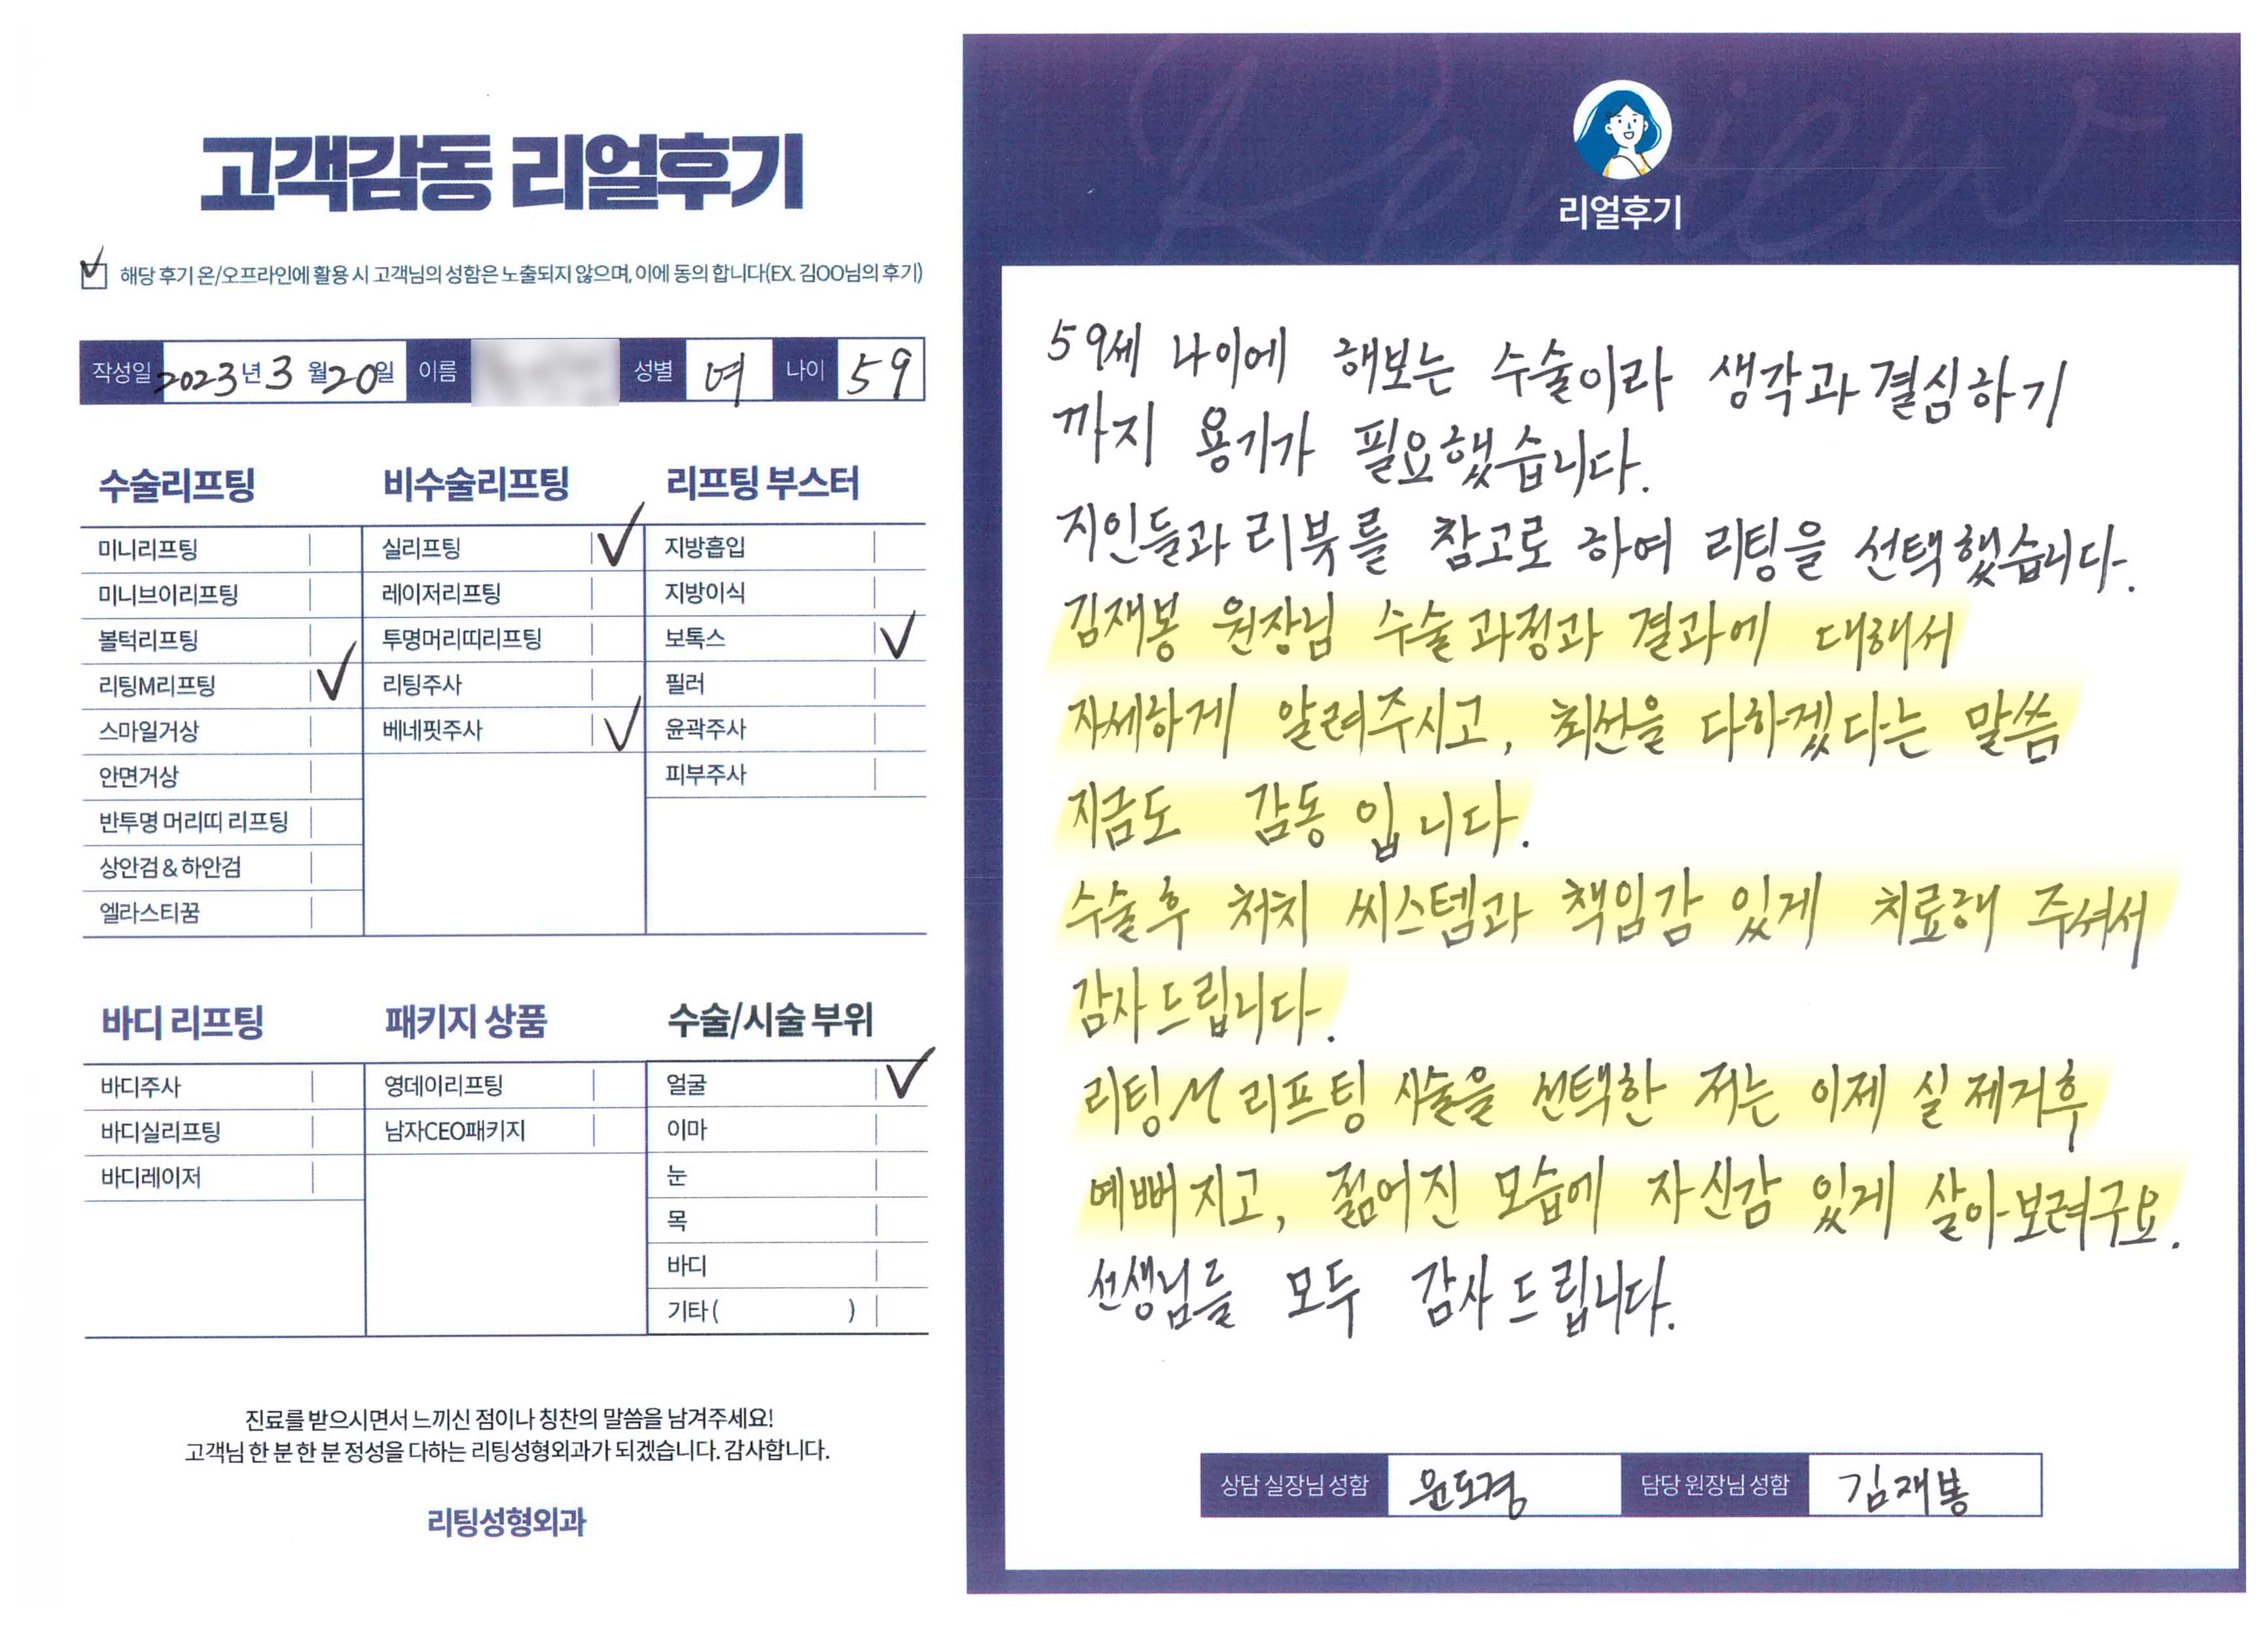 고객감동 리얼후기
✓ 해당 후기 온/오프라인에 활용 시 고객님의 성함은 노출되지 않으며, 이에 동의 합니다(EX. 김OO님의 후기)
작성일 2023년 3월 20일 이름 성별 여 나이 59
수술리프팅
미니리프팅
미니브이리프팅
볼턱리프팅
리팅M리프팅 ✓
스마일거상
안면거상
반투명 머리띠 리프팅
상안검 & 하안검
엘라스티꿈
비수술리프팅
실리프팅 ✓
레이저리프팅
투명머리띠리프팅
리팅주사
베네핏주사 ✓
리프팅 부스터
지방흡입
지방이식
보톡스 ✓
필러
윤곽주사
피부주사
바디 리프팅
바디주사
바디실리프팅
바디레이저
패키지 상품
영데이리프팅
남자CEO패키지
수술/시술 부위
얼굴 ✓
이마
눈
목
바디
기타 ( )
진료를 받으시면서 느끼신 점이나 칭찬의 말씀을 남겨주세요!
고객님 한 분 한 분 정성을 다하는 리팅성형외과가 되겠습니다. 감사합니다.
리팅성형외과
Review
리얼후기
59세 나이에 해보는 수술이라 생각과 결심하기
까지 용기가 필요했습니다.
지인들과 리뷰를 참고로 하여 리팅을 선택했습니다.
김재봉 원장님 수술과정과 결과에 대해서
자세하게 알려주시고, 최선을 다하겠다는 말씀
지금도 감동입니다.
수술후 처치 씨스템과 책임감 있게 치료해 주셔서
감사드립니다.
리팅M리프팅 시술을 선택한 저는 이제 실제거후
예뻐지고, 젊어진 모습에 자신감 있게 살아보려구요.
선생님들 모두 감사드립니다.
상담 실장님 성함 윤도경 담당 원장님 성함 김재봉